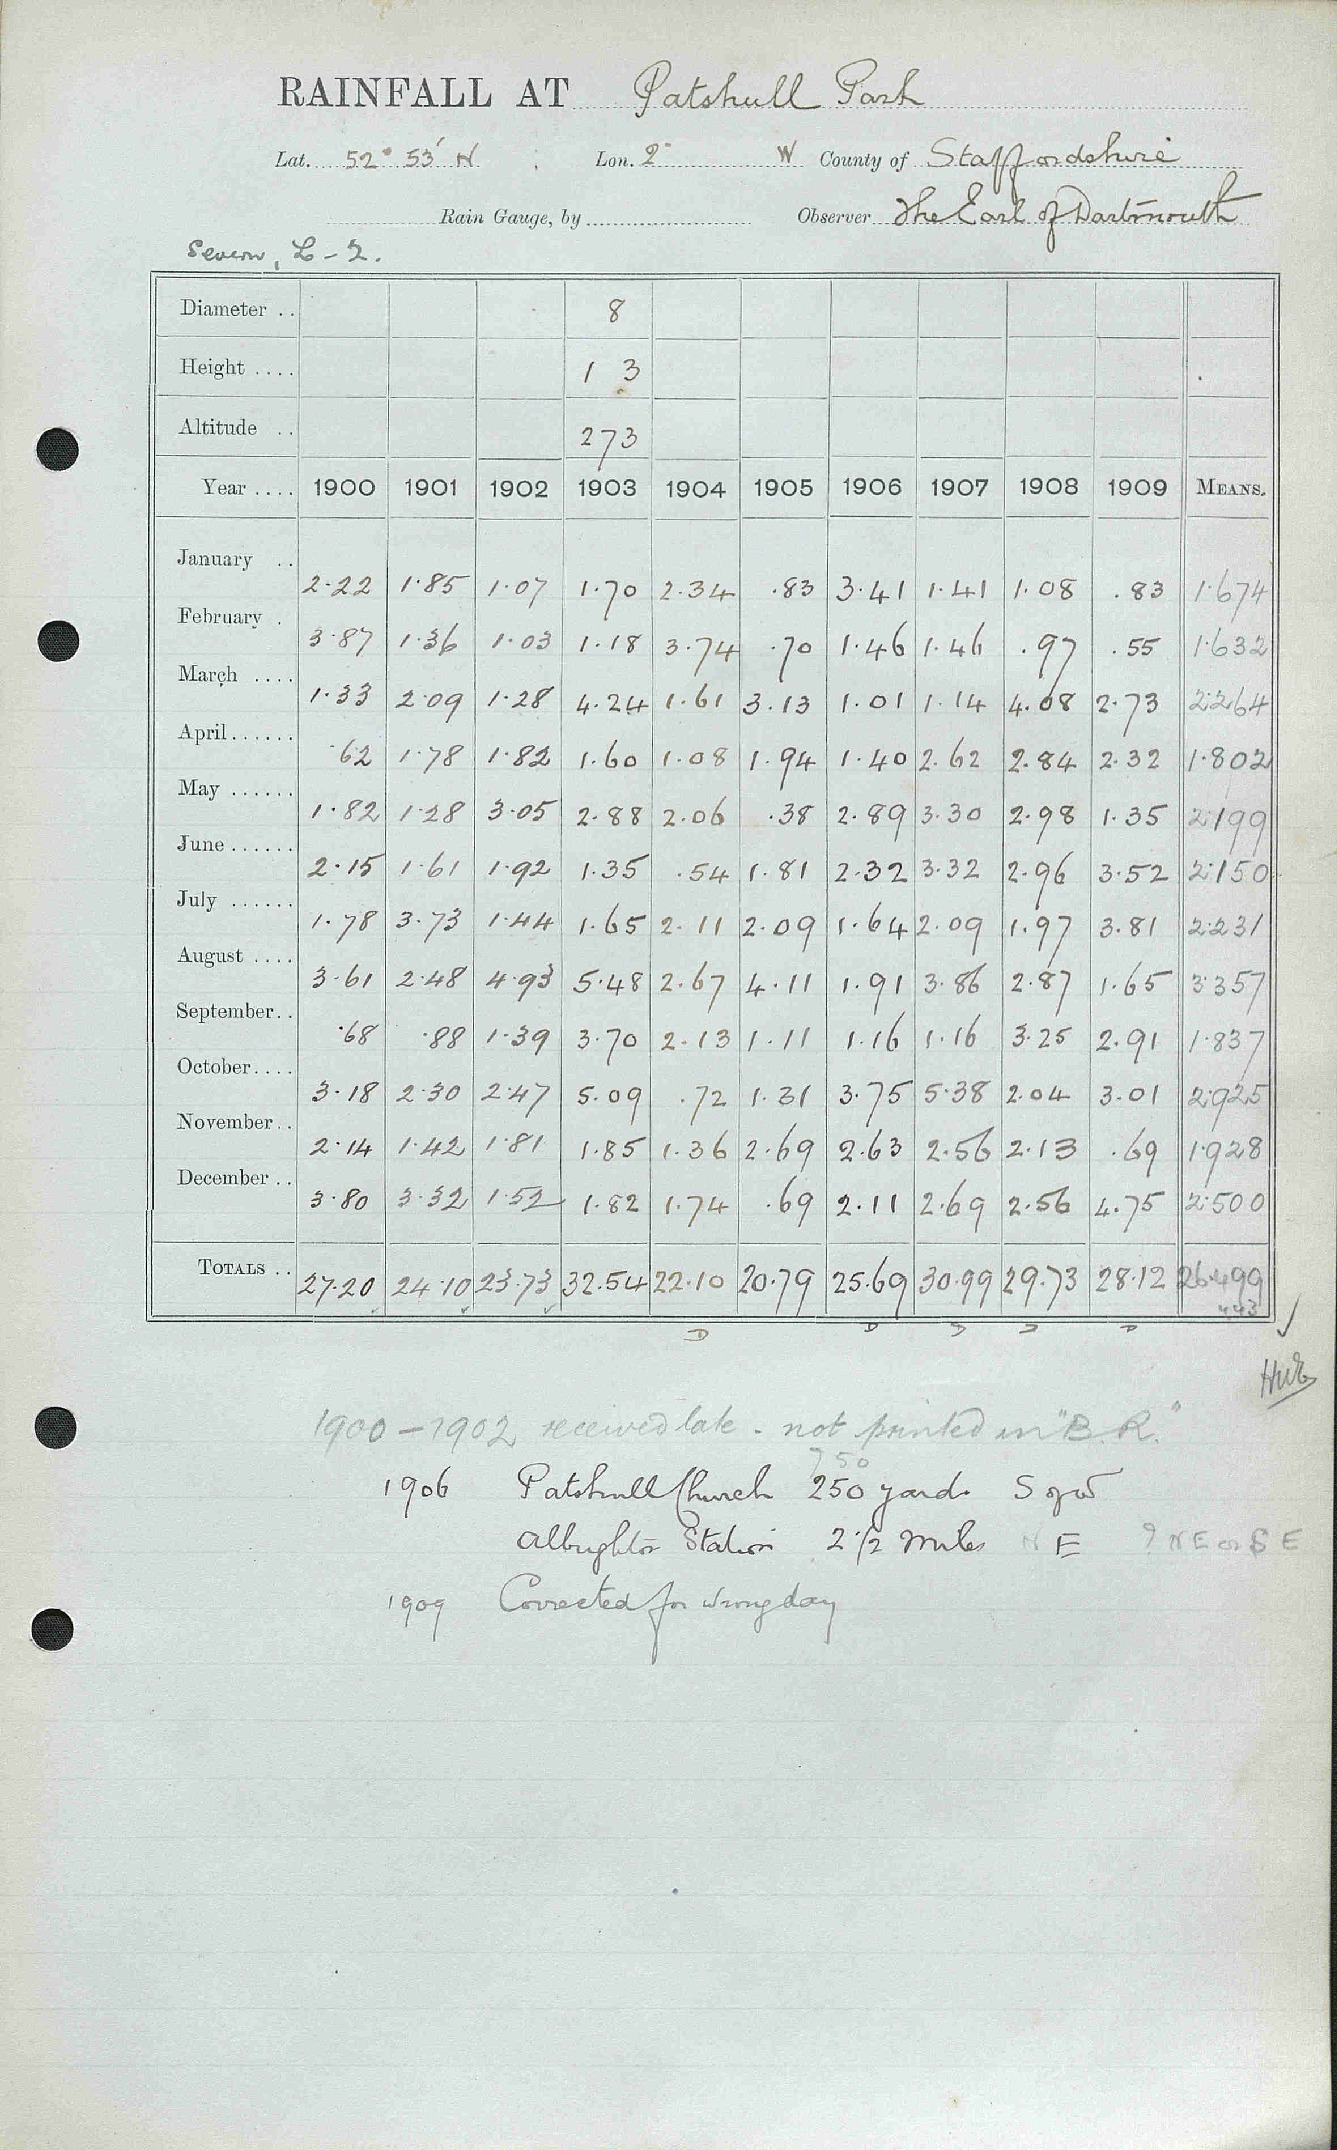 RAINFALL AT Patshull Park
Lat. 52° 53' N Lon. 2° W County of Staffordshire
Rain Gauge, by Observer The Earl of Dartmouth
Severn, L - 2.
Diameter .. 8
Height .... 1 3
Altitude .. 273
Year .... 1900 1901 1902 1903 1904 1905 1906 1907 1908 1909 MEANS.
January .. 2.22 1.85 1.07 1.70 2.34 .83 3.41 1.41 1.08 .83 1.674
February . 3.87 1.36 1.03 1.18 3.74 .70 1.46 1.46 .97 .55 1.632
March .... 1.33 2.09 1.28 4.24 1.61 3.13 1.01 1.14 4.08 2.73 2.264
April ...... .62 1.78 1.82 1.60 1.08 1.94 1.40 2.62 2.84 2.32 1.802
May ...... 1.82 1.28 3.05 2.88 2.06 .38 2.89 3.30 2.98 1.35 2.199
June ...... 2.15 1.61 1.92 1.35 .54 1.81 2.32 3.32 2.96 3.52 2.150
July ...... 1.78 3.73 1.44 1.65 2.11 2.09 1.64 2.09 1.97 3.81 2.231
August .... 3.61 2.48 4.93 5.48 2.67 4.11 1.91 3.86 2.87 1.65 3.357
September.. .68 .88 1.39 3.70 2.13 1.11 1.16 1.16 3.25 2.91 1.837
October.... 3.18 2.30 2.47 5.09 .72 1.31 3.75 5.38 2.04 3.01 2.925
November.. 2.14 1.42 1.81 1.85 1.36 2.69 2.63 2.56 2.13 .69 1.928
December .. 3.80 3.32 1.52 1.82 1.74 .69 2.11 2.69 2.56 4.75 2.500
TOTALS .. 27.20 24.10 23.73 32.54 22.10 20.79 25.69 30.99 29.73 28.12 26.499
1900 - 1902 received late - not printed in "B.R."
750
1906 Patshull Church 250 yards S of W
Albrighton Station 2 1/2 miles N E ? NE or SE
1909 Corrected for wrong day